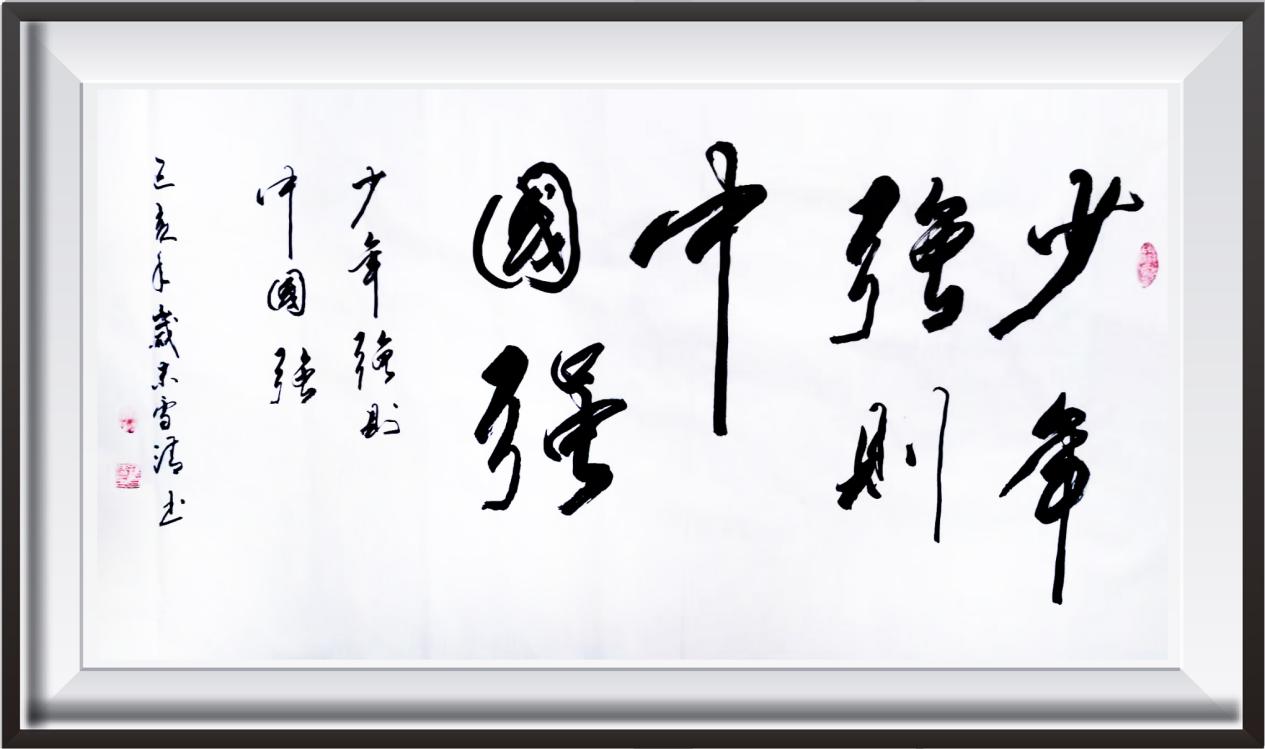 少年
強則
中
國强
少年強則
中國強
己亥年歲末雪清书